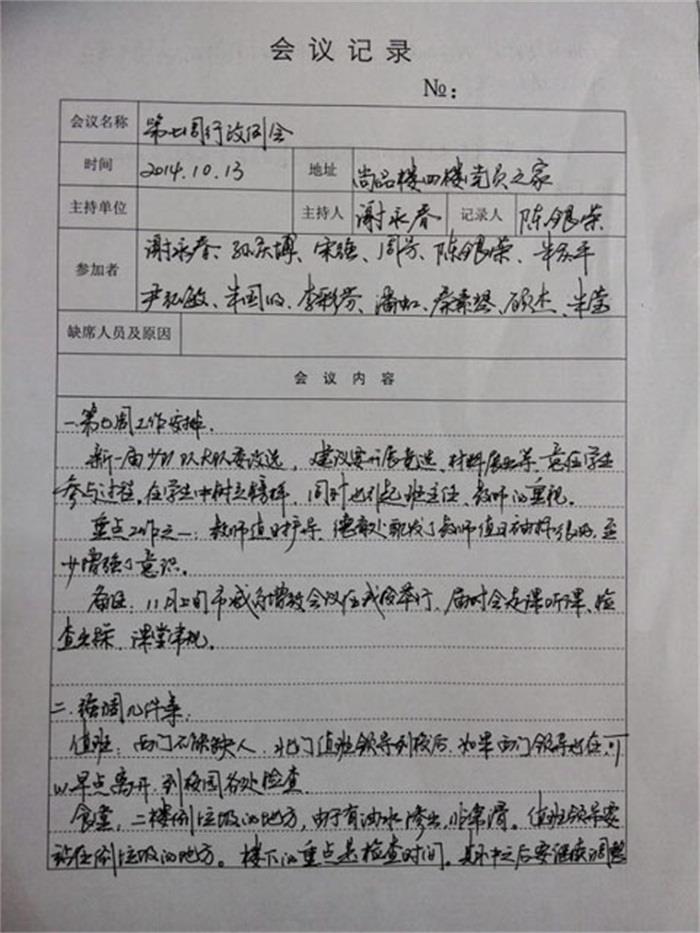 会议记录
№：
会议名称 第七周行政例会
时间 2014.10.13 地址 尚品楼四楼党员之家
主持单位 主持人 谢永春 记录人 陈银荣
谢永春、孙庆博、宋强、周芳、陈银荣、
参加者
尹弘敏、朱国明、李彩芬、潘虹、秦素琴、顾杰、朱莹
缺席人员及原因
会议内容
一.第七周工作安排.
新一届少先队大队委改选，建议要开展竞选、材料展出等、意在学生
参与过程，在学生中树立榜样，同时也引起班主任、教师的重视。
重点工作之一：教师值日护导、德育处配发了教师值日袖标很好，至
少增强了意识。
备注：11月上旬市减负增效会议在我校举行，届时会走课听课、检
查，课堂常规。
二.强调几件事.
值班：西门不能缺人.北门值班领导到校后，如果西门领导也在，可
以早点离开，到校园各处检查.
食堂，二楼倒垃圾的地方，由于有油水渗出，非常滑。值班领导要
站在倒垃圾的地方。楼下的重点是检查时间。之后要继续调整